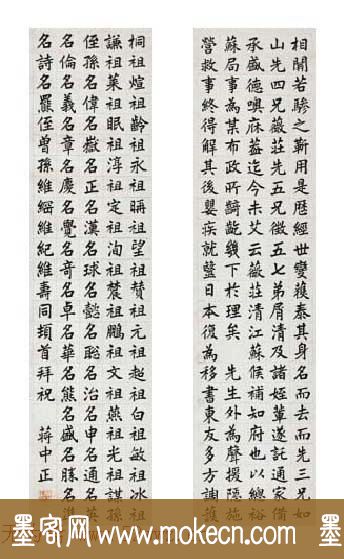 相關若驂之靳用是歷經世變獲泰其身名而去而先三兄如
山先四兄薇莊先五兄微五七弟屑清及諸姪輩遂託通家備
承盛德噢庥蓋迄今未艾云薇莊清江蘇候補知府也以總裕
蘇局事為某布政所齮齕幾下於理矣 先生外為聲援隱施
營救事終得解其後嬰疾就毉日本復為移書東友多方調護
桐祖煊祖齡祖永祖祖望祖贊祖元祖超祖白祖敏祖冰祖
謙祖萊祖眠祖淳祖定祖洵祖農祖鵬祖文祖燕祖光祖謀孫
侄孫名偉名嶽名正名漢名球名懿名聡名治名申名通名英
名倫名義名章名慶名覺名奇名卓名華名熊名盛名勝名
名詩名羆侄曾孫維綱維紀維壽同頓首拜祝 蔣中正
墨客网 www.mokecn.com
墨客网 www.mokecn.com